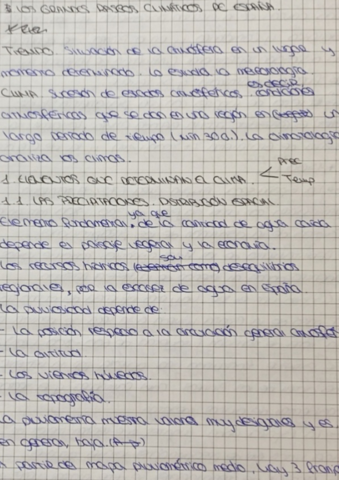 LOS GRANDES RASGOS CLIMÁTICOS DE ESPAÑA
TIEMPO situación de la atmósfera en un lugar y
momento determinado. La estudia la meteorología
CLIMA sucesión de estados atmosféricos, es decir condiciones
atmosféricas que se dan en una región en un
largo periodo de tiempo (mín 30a.). La climatología
analiza los climas.
1. ELEMENTOS QUE DETERMINAN EL CLIMA < Prec
Temp
1.1 LAS PRECIPITACIONES. DISTRIBUCIÓN ESPACIAL
Elemento fundamental, ya que de la cantidad de agua caída
depende el paisaje vegetal y la economía.
Los recursos hídricos, son desequilibrios
regionales, por la escasez de agua en España.
La pluviosidad depende de
- La posición respecto a la circulación general atmosf
- La altitud
- Los vientos húmedos.
- La topografía.
La pluviometría muestra valores muy desiguales y es
en general, baja
A partir del mapa pluviométrico medio, hay 3 franj